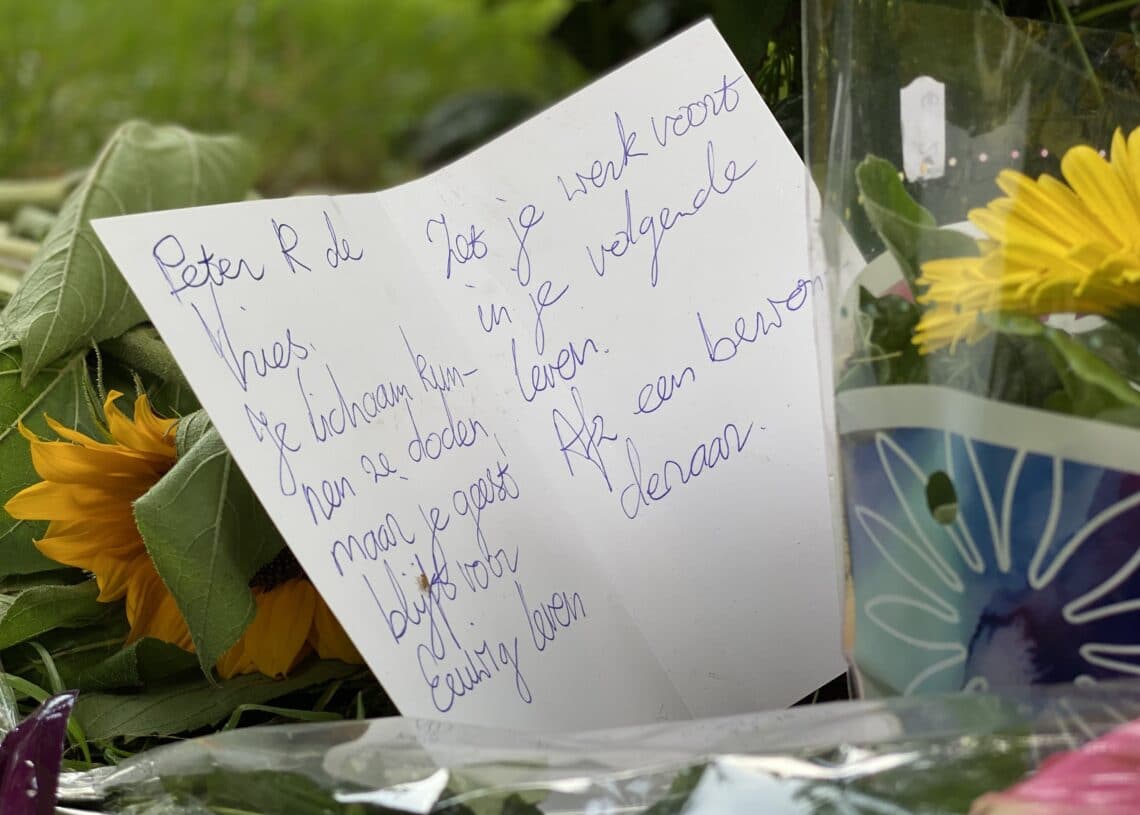 Peter R de
Vries.
Je lichaam kun-
nen ze doden,
maar je geest
blijft voor
Eeuwig leven
Zet je werk voort
in je volgende
leven.
Afz een bewon
deraar.